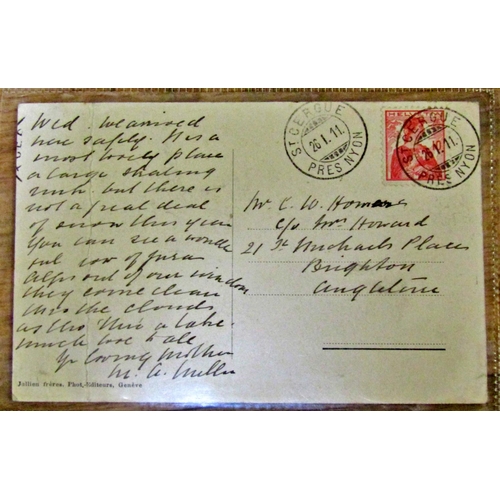 Wed. we arrived
here safely. It is a
most lovely place
a large skating
rink but there is
not a great deal
of snow this year
You can see a wonder
ful row of Jura
Alps out of our window
they come clean
thro the clouds
as tho this a lake.
much love to all
Yr loving Mother
M. A.
Jullien frères, Phot.-Editeurs, Genève
ST CERGUE
26.1.11.
PRÈS NYON
HELVETIA
ST CERGUE
26.12.11.
PRÈS NYON
Mr C. W.
c/o Mrs Howard
21 St Michaels Places
Brighton
Angleterre